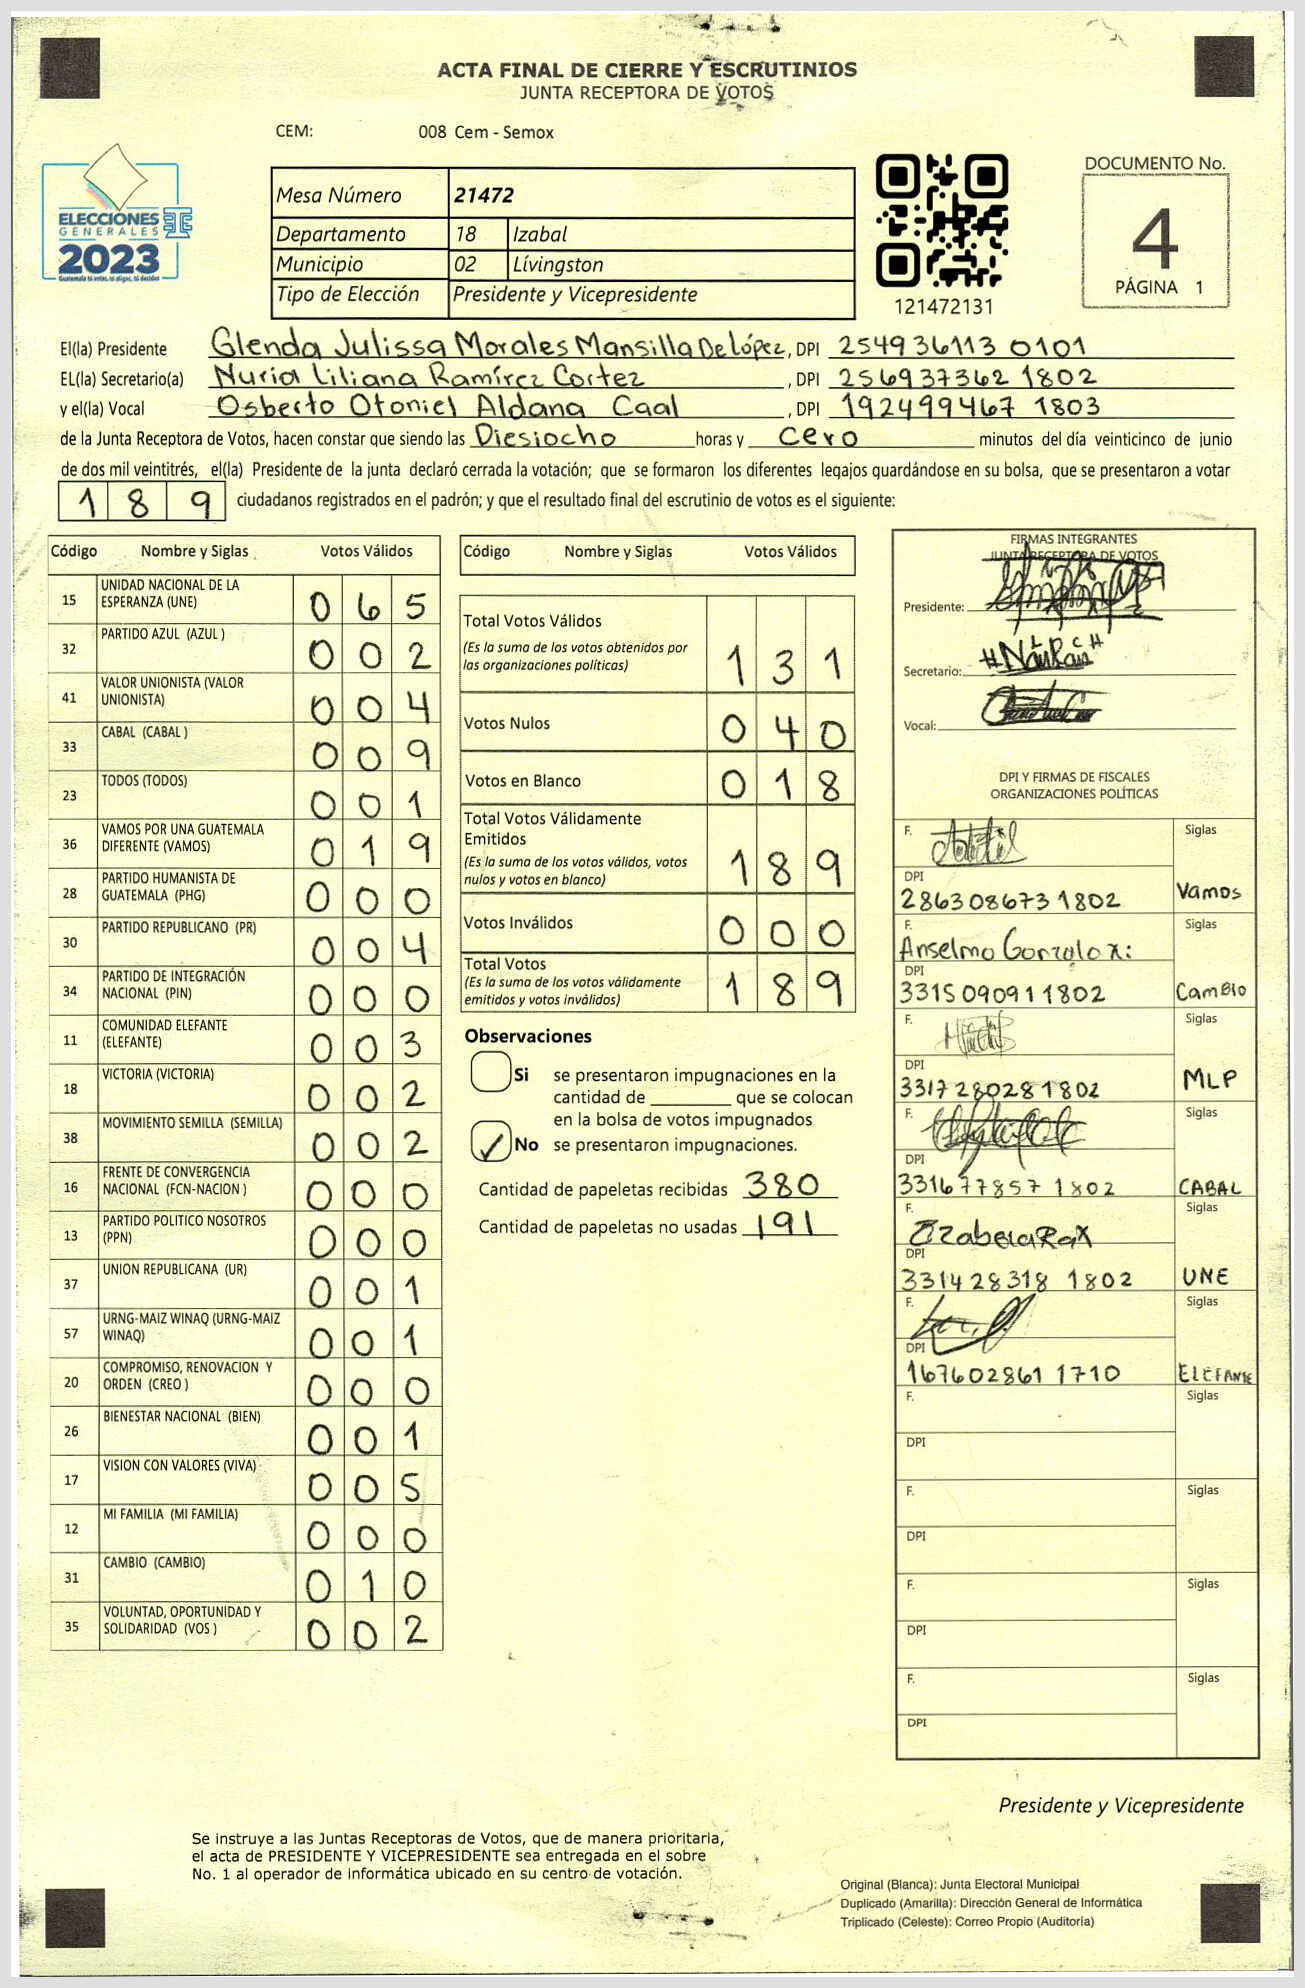 ACTA FINAL DE CIERRE Y ESCRUTINIOS
JUNTA RECEPTORA DE VOTOS
CEM: 008 Cem - Semox
ELECCIONES
GENERALES
2023
Mesa Número 21472
Departamento 18 Izabal
Municipio 02 Lívingston
Tipo de Elección Presidente y Vicepresidente
121472131
DOCUMENTO No.
4
PÁGINA 1
El(la) Presidente Glenda Julissa Morales Mansilla De López, DPI 254936113 0101
EL(la) Secretario(a) Nuria Liliana Ramírez Cortez , DPI 256937362 1802
y el(la) Vocal Osberto Otoniel Aldana Caal , DPI 192499467 1803
de la Junta Receptora de Votos, hacen constar que siendo las Diesiocho horas y cero minutos del día veinticinco de junio
de dos mil veintitrés, el(la) Presidente de la junta declaró cerrada la votación; que se formaron los diferentes legajos quardándose en su bolsa, que se presentaron a votar
189 ciudadanos registrados en el padrón; y que el resultado final del escrutinio de votos es el siguiente:
Código Nombre y Siglas Votos Válidos
15 UNIDAD NACIONAL DE LA ESPERANZA (UNE) 065
32 PARTIDO AZUL (AZUL ) 002
41 VALOR UNIONISTA (VALOR UNIONISTA) 004
33 CABAL (CABAL ) 009
23 TODOS (TODOS) 001
36 VAMOS POR UNA GUATEMALA DIFERENTE (VAMOS) 019
28 PARTIDO HUMANISTA DE GUATEMALA (PHG) 000
30 PARTIDO REPUBLICANO (PR) 004
34 PARTIDO DE INTEGRACIÓN NACIONAL (PIN) 000
11 COMUNIDAD ELEFANTE (ELEFANTE) 003
18 VICTORIA (VICTORIA) 002
38 MOVIMIENTO SEMILLA (SEMILLA) 002
16 FRENTE DE CONVERGENCIA NACIONAL (FCN-NACION ) 000
13 PARTIDO POLITICO NOSOTROS (PPN) 000
37 UNION REPUBLICANA (UR) 001
57 URNG-MAIZ WINAQ (URNG-MAIZ WINAQ) 001
20 COMPROMISO, RENOVACION Y ORDEN (CREO ) 000
26 BIENESTAR NACIONAL (BIEN) 001
17 VISION CON VALORES (VIVA) 005
12 MI FAMILIA (MI FAMILIA) 000
31 CAMBIO (CAMBIO) 010
35 VOLUNTAD, OPORTUNIDAD Y SOLIDARIDAD (VOS ) 002
Código Nombre y Siglas Votos Válidos
Total Votos Válidos
(Es la suma de los votos obtenidos por
las organizaciones politicas) 131
Votos Nulos 040
Votos en Blanco 018
Total Votos Válidamente
Emitidos
(Es la suma de los votos válidos, votos
nulos y votos en blanco) 189
Votos Inválidos 000
Total Votos
(Es la suma de los votos válidamente
emitidos y votos inválidos) 189
Observaciones
Si se presentaron impugnaciones en la
cantidad de ________ que se colocan
en la bolsa de votos impugnados
✓ No se presentaron impugnaciones.
Cantidad de papeletas recibidas 380
Cantidad de papeletas no usadas 191
FIRMAS INTEGRANTES
JUNTA RECEPTORA DE VOTOS
Presidente:
Secretario:
Vocal:
DPI Y FIRMAS DE FISCALES
ORGANIZACIONES POLÍTICAS
F. Siglas
DPI
286308673 1802 Vamos
F. Siglas
Anselmo
DPI
331509091 1802 Cambio
F. Siglas
DPI
331728028 1802 MLP
F. Siglas
DPI
331677857 1802 CABAL
F. Siglas
DPI
331428318 1802 UNE
F. Siglas
DPI
167602861 1710 ELEFANTE
F. Siglas
DPI
F. Siglas
DPI
F. Siglas
DPI
F. Siglas
DPI
Presidente y Vicepresidente
Se instruye a las Juntas Receptoras de Votos, que de manera prioritaria,
el acta de PRESIDENTE Y VICEPRESIDENTE sea entregada en el sobre
No. 1 al operador de informática ubicado en su centro de votación.
Original (Blanca): Junta Electoral Municipal
Duplicado (Amarilla): Dirección General de Informática
Triplicado (Celeste): Correo Propio (Auditoría)